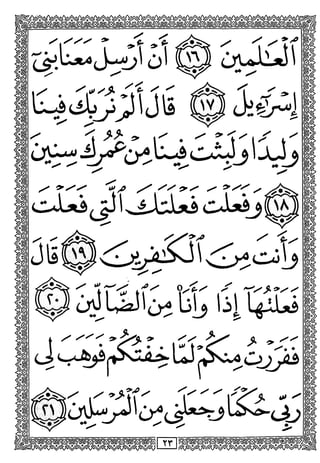 ٱلْعَـٰلَمِينَ ١٦ أَنْ أَرْسِلْ مَعَنَا بَنِىٓ
إِسْرَٰٓءِيلَ ١٧ قَالَ أَلَمْ نُرَبِّكَ فِينَا
وَلِيدًا وَلَبِثْتَ فِينَا مِنْ عُمُرِكَ سِنِينَ
١٨ وَفَعَلْتَ فَعْلَتَكَ ٱلَّتِى فَعَلْتَ
وَأَنتَ مِنَ ٱلْكَـٰفِرِينَ ١٩ قَالَ
فَعَلْتُهَآ إِذًا وَأَنَا۠ مِنَ ٱلضَّآلِّينَ ٢٠
فَفَرَرْتُ مِنكُمْ لَمَّا خِفْتُكُمْ فَوَهَبَ لِى
رَبِّى حُكْمًا وَجَعَلَنِى مِنَ ٱلْمُرْسَلِينَ ٢١
٢٣